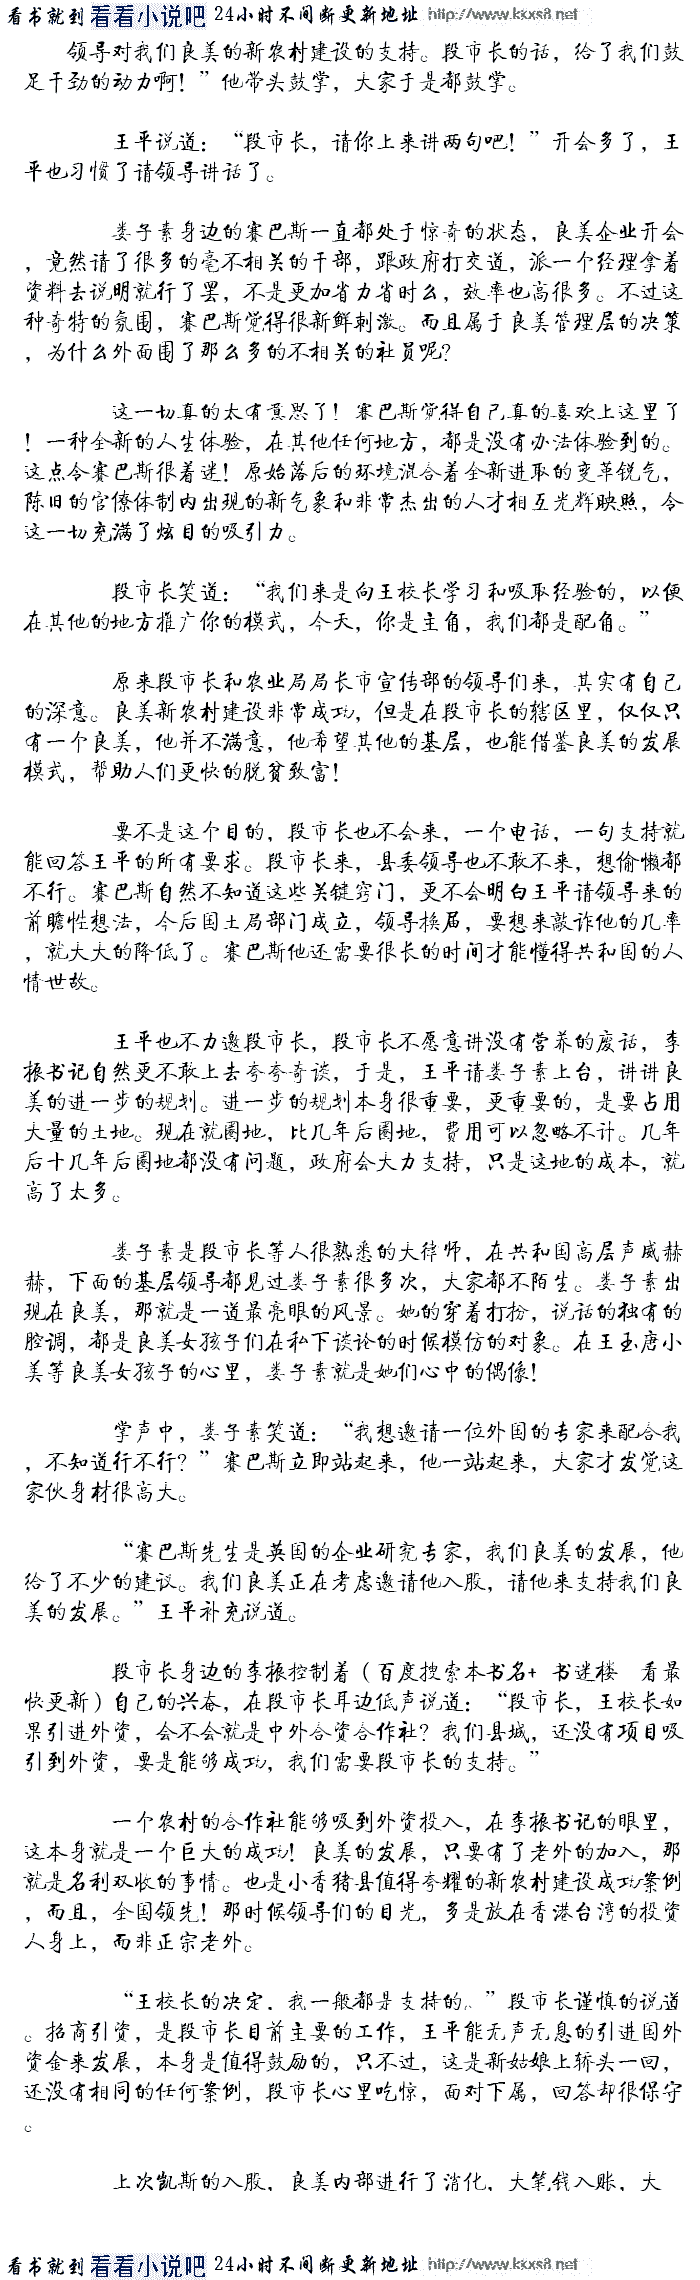 看书就到 看看小说吧 24小时不间断更新地址 http://www.kkxs8.net
领导对我们良美的新农村建设的支持。段市长的话，给了我们鼓
足干劲的动力啊！”他带头鼓掌，大家于是都鼓掌。
王平说道：“段市长，请你上来讲两句吧！”开会多了，王
平也习惯了请领导讲话了。
娄子素身边的赛巴斯一直都处于惊奇的状态，良美企业开会
，竟然请了很多的毫不相关的干部，跟政府打交道，派一个经理拿着
资料去说明就行了罢，不是更加省力省时么，效率也高很多。不过这
种奇特的氛围，赛巴斯觉得很新鲜刺激。而且属于良美管理层的决策
，为什么外面围了那么多的不相关的社员呢？
这一切真的太有意思了！赛巴斯觉得自己真的喜欢上这里了
！一种全新的人生体验，在其他任何地方，都是没有办法体验到的。
这点令赛巴斯很着迷！原始落后的环境混合着全新进取的变革锐气，
陈旧的官僚体制内出现的新气象和非常杰出的人才相互光辉映照，令
这一切充满了炫目的吸引力。
段市长笑道：“我们来是向王校长学习和吸取经验的，以便
在其他的地方推广你的模式，今天，你是主角，我们都是配角。”
原来段市长和农业局局长市宣传部的领导们来，其实有自己
的深意。良美新农村建设非常成功，但是在段市长的辖区里，仅仅只
有一个良美，他并不满意，他希望其他的基层，也能借鉴良美的发展
模式，帮助人们更快的脱贫致富！
要不是这个目的，段市长也不会来，一个电话，一句支持就
能回答王平的所有要求。段市长来，县委领导也不敢不来，想偷懒都
不行。赛巴斯自然不知道这些关键窍门，更不会明白王平请领导来的
前瞻性想法，今后国土局部门成立，领导换届，要想来敲诈他的几率
，就大大的降低了。赛巴斯他还需要很长的时间才能懂得共和国的人
情世故。
王平也不力邀段市长，段市长不愿意讲没有营养的废话，李
振书记自然更不敢上去夸夸奇谈，于是，王平请娄子素上台，讲讲良
美的进一步的规划。进一步的规划本身很重要，更重要的，是要占用
大量的土地。现在就圈地，比几年后圈地，费用可以忽略不计。几年
后十几年后圈地都没有问题，政府会大力支持，只是这地的成本，就
高了太多。
娄子素是段市长等人很熟悉的大律师，在共和国高层声威赫
赫，下面的基层领导都见过娄子素很多次，大家都不陌生。娄子素出
现在良美，那就是一道最亮眼的风景。她的穿着打扮，说话的独有的
腔调，都是良美女孩子们在私下谈论的时候模仿的对象。在王玉唐小
美等良美女孩子的心里，娄子素就是她们心中的偶像！
掌声中，娄子素笑道：“我想邀请一位外国的专家来配合我
，不知道行不行？”赛巴斯立即站起来，他一站起来，大家才发觉这
家伙身材很高大。
“赛巴斯先生是英国的企业研究专家，我们良美的发展，他
给了不少的建议。我们良美正在考虑邀请他入股，请他来支持我们良
美的发展。”王平补充说道。
段市长身边的李振控制着（百度搜索本书名+ 书迷楼 看最
快更新）自己的兴奋，在段市长耳边低声说道：“段市长，王校长如
果引进外资，会不会就是中外合资合作社？我们县城，还没有项目吸
引到外资，要是能够成功，我们需要段市长的支持。”
一个农村的合作社能够吸到外资投入，在李振书记的眼里，
这本身就是一个巨大的成功！良美的发展，只要有了老外的加入，那
就是名利双收的事情。也是小香猪县值得夸耀的新农村建设成功案例
，而且，全国领先！那时候领导们的目光，多是放在香港台湾的投资
人身上，而非正宗老外。
“王校长的决定，我一般都是支持的。”段市长谨慎的说道
。招商引资，是段市长目前主要的工作，王平能无声无息的引进国外
资金来发展，本身是值得鼓励的，只不过，这是新姑娘上轿头一回，
还没有相同的任何案例，段市长心里吃惊，面对下属，回答却很保守
。
上次凯斯的入股，良美内部进行了消化，大笔钱入账，大
看书就到 看看小说吧 24小时不间断更新地址 http://www.kkxs8.net